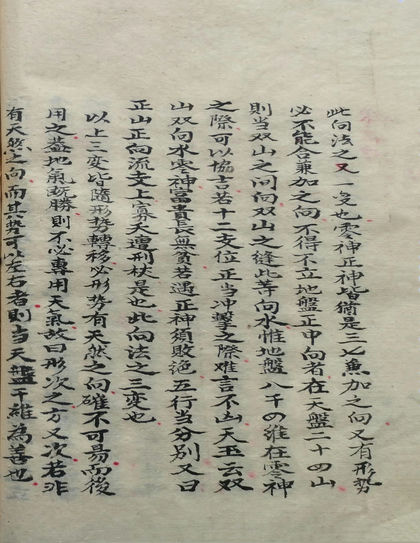 此向法之又一变也零神正神皆犹是三七兼加之向又有形势
必不能合兼加之向不得不立地盘正中向者在天盘二十四山
则当双山之间向双山之缝此等向水惟地盘八干四维在零神
之际可以协吉若十二支位正当冲击之际难言不凶天玉云双
山双向水零神富貴長無貧若遇正神须敗绝五行当分别又曰
正山正向流支上寡夭遭刑杖是也此向法之三变也
以上三变皆随形势轉移必形势有天然之向確不可易而後
用之蓋地氣既勝則不必專用天氣故曰形次之方又次若非
有天然之向而其势可以左右者則当天盤干維為善也